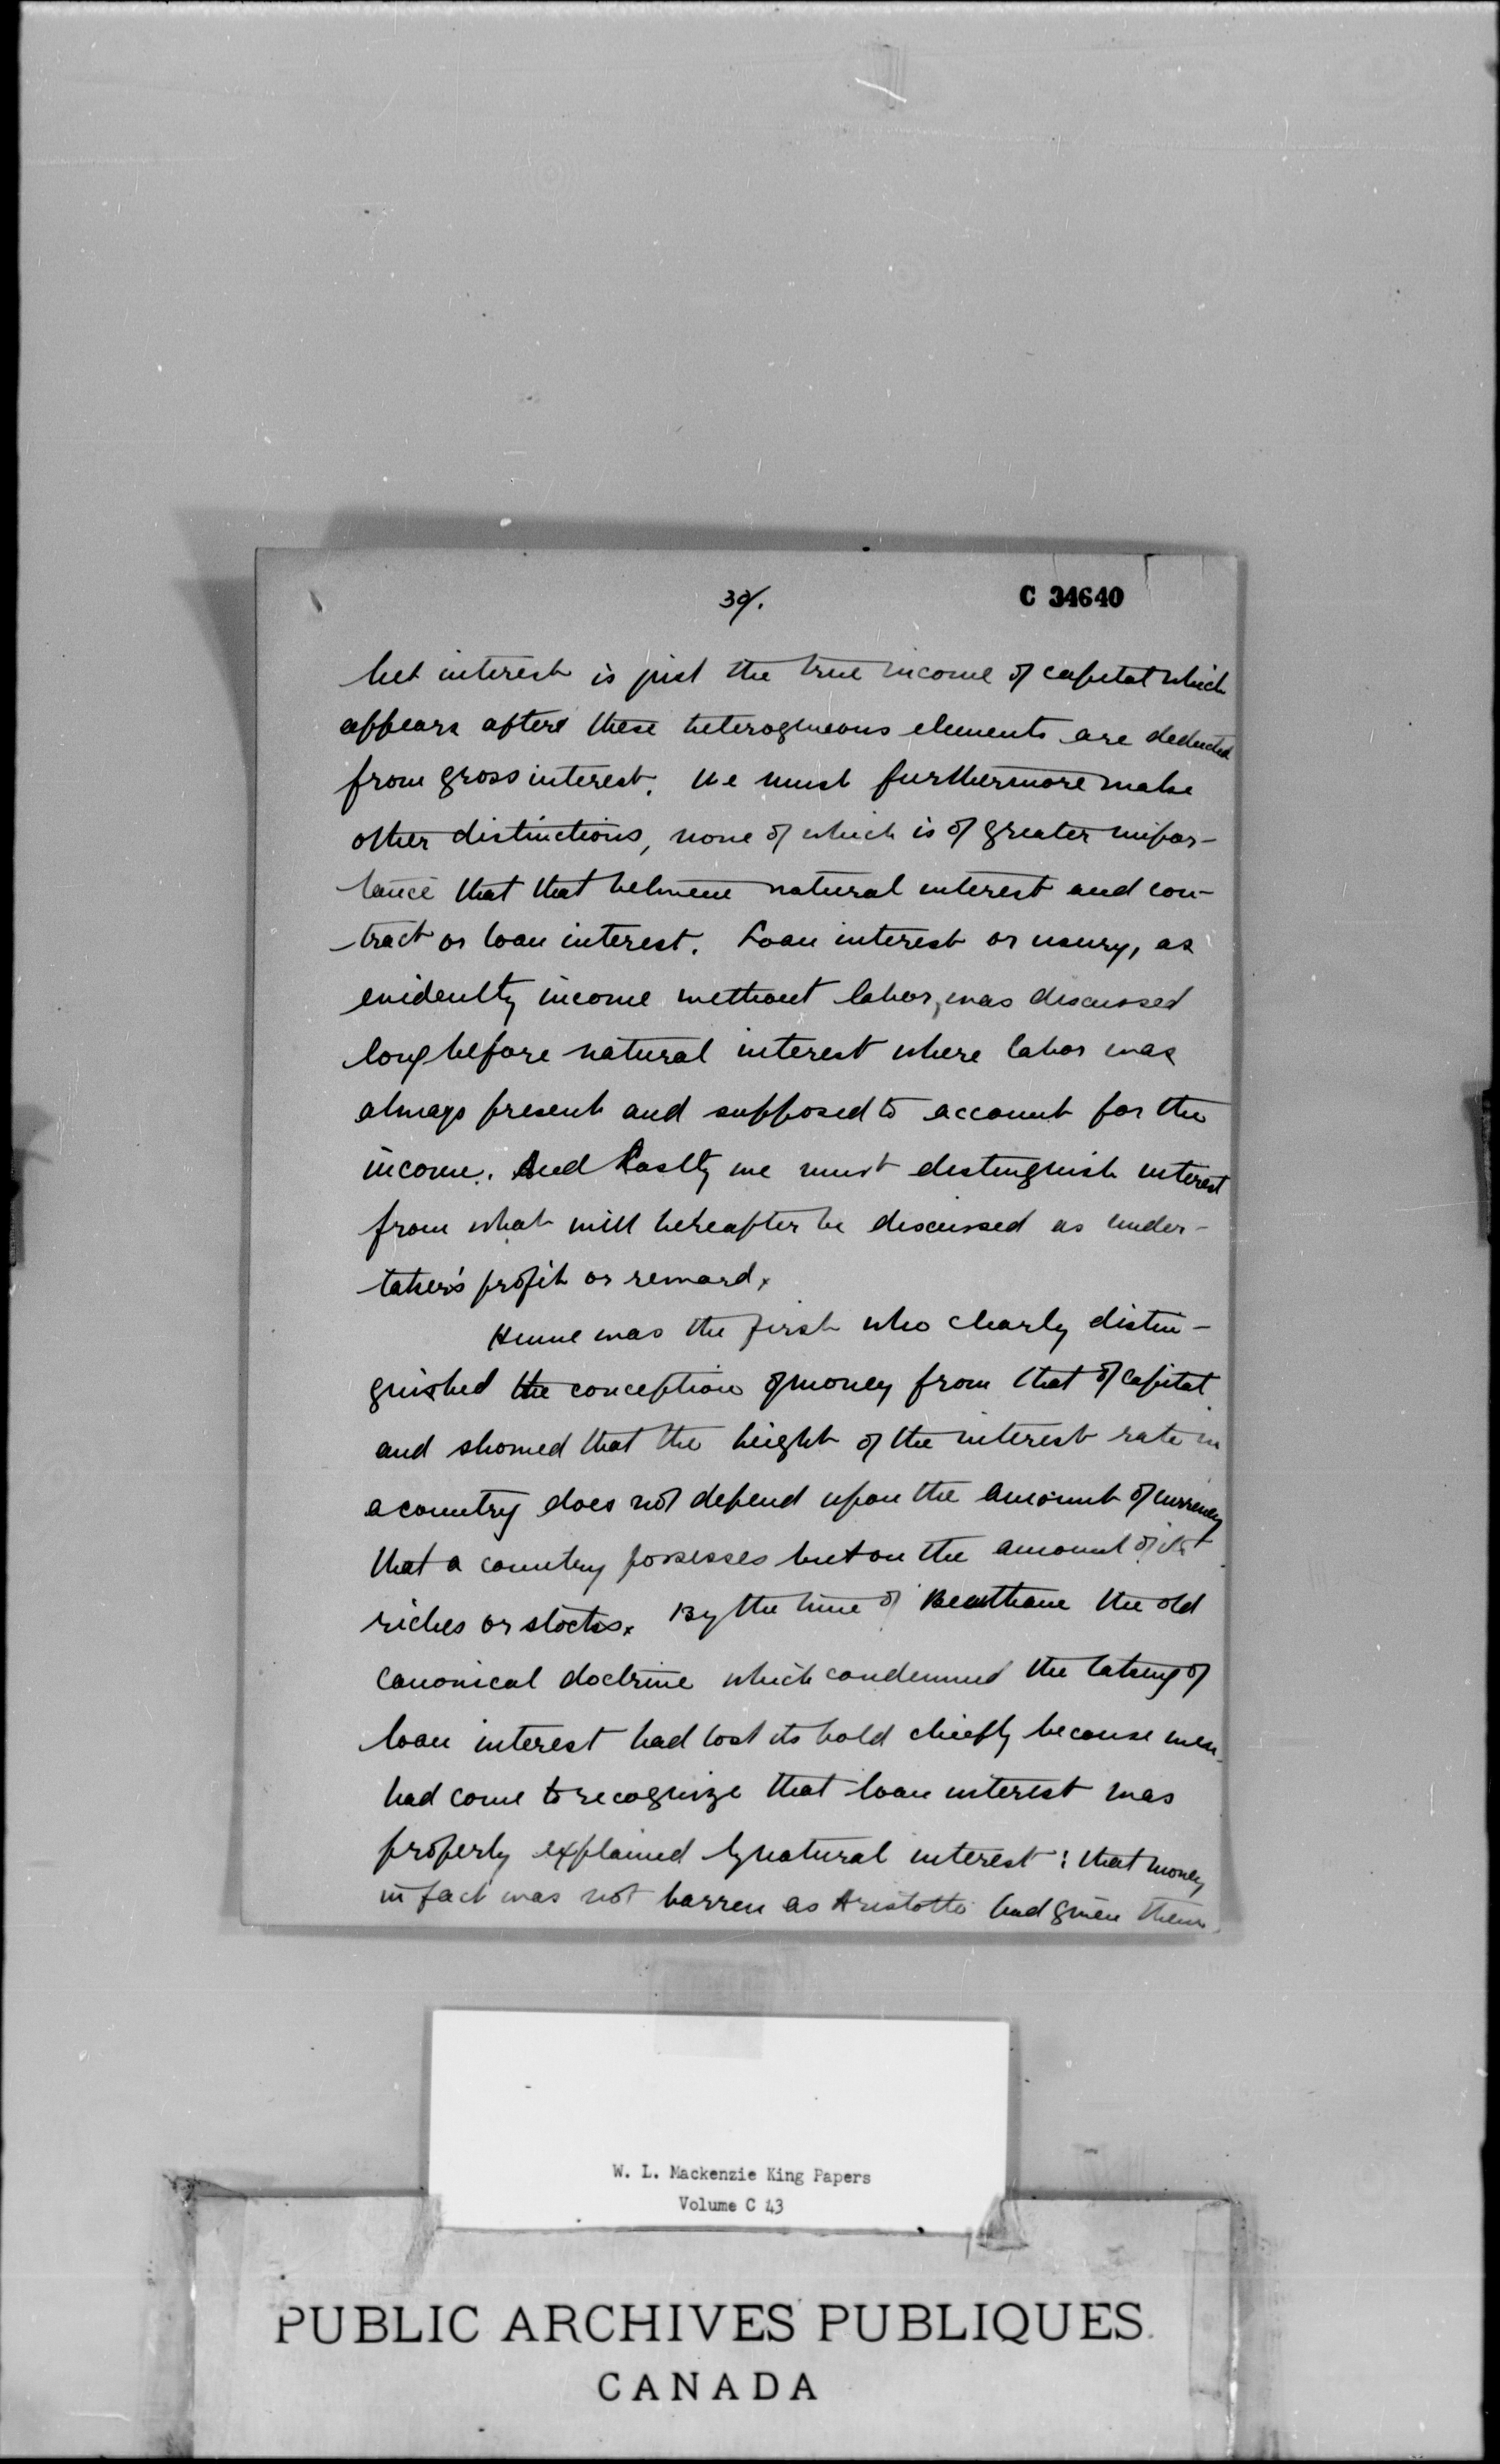 30/.
C 34640
Net interest is just the true income of capital which
appears after these heterogeneous elements are deducted
from gross interest. We must furthermore make
other distinctions, none of which is of greater impor-
tance that that between natural interest and con-
tract or loan interest. Loan interest or usury, as
evidently income without labor, was discussed
long before natural interest where labor was
always present and supposed to account for the
income. And lastly we must distinguish interest
from what will hereafter be discussed as under-
taker's profit or reward.
Hume was the first who clearly distin-
guished the conception of money from that of capital
and showed that the height of the interest rate in
a country does not depend upon the amount of currency
that a country possesses but on the amount of its
riches or stocks. By the time of Bentham the old
canonical doctrine which condemned the taking of
loan interest had lost its hold chiefly because men
had come to recognize that loan interest was
properly explained by natural interest: that money
in fact was not barren as Aristotle had given them
W. L. Mackenzie King Papers
Volume C 43
PUBLIC ARCHIVES PUBLIQUES
CANADA